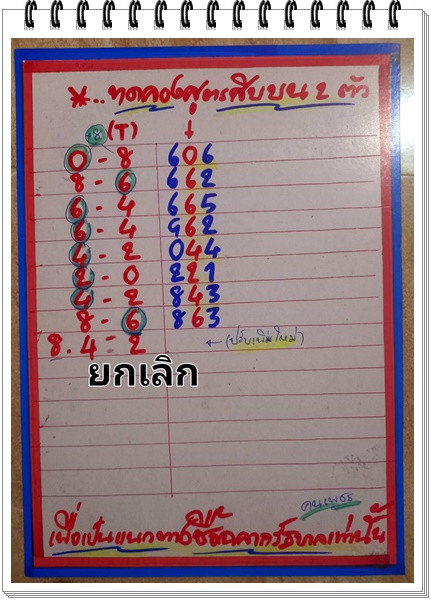 *..ทดลองสูตรสิบบน 2 ตัว
18 (T)
0 - 8 606
8 - 6 662
6 - 4 665
6 - 4 962
4 - 2 044
2 - 0 221
4 - 2 843
8 - 6 863
8.4 = 2 ← (ปรับเพิ่มใหม่)
ยกเลิก
คนเพชร
เพื่อเป็นแนวทางซื้อสลากรัฐบาลเท่านั้น